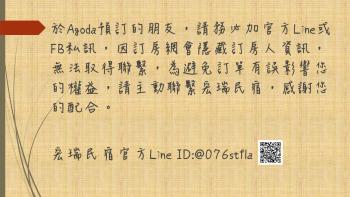 於Agoda預訂的朋友，請務必加官方Line或
FB私訊，因訂房網會隱藏訂房人資訊，
無法取得聯繫，為避免訂單有誤影響您
的權益，請主動聯繫宏瑞民宿，感謝您
的配合。
宏瑞民宿官方Line ID:@076stlla